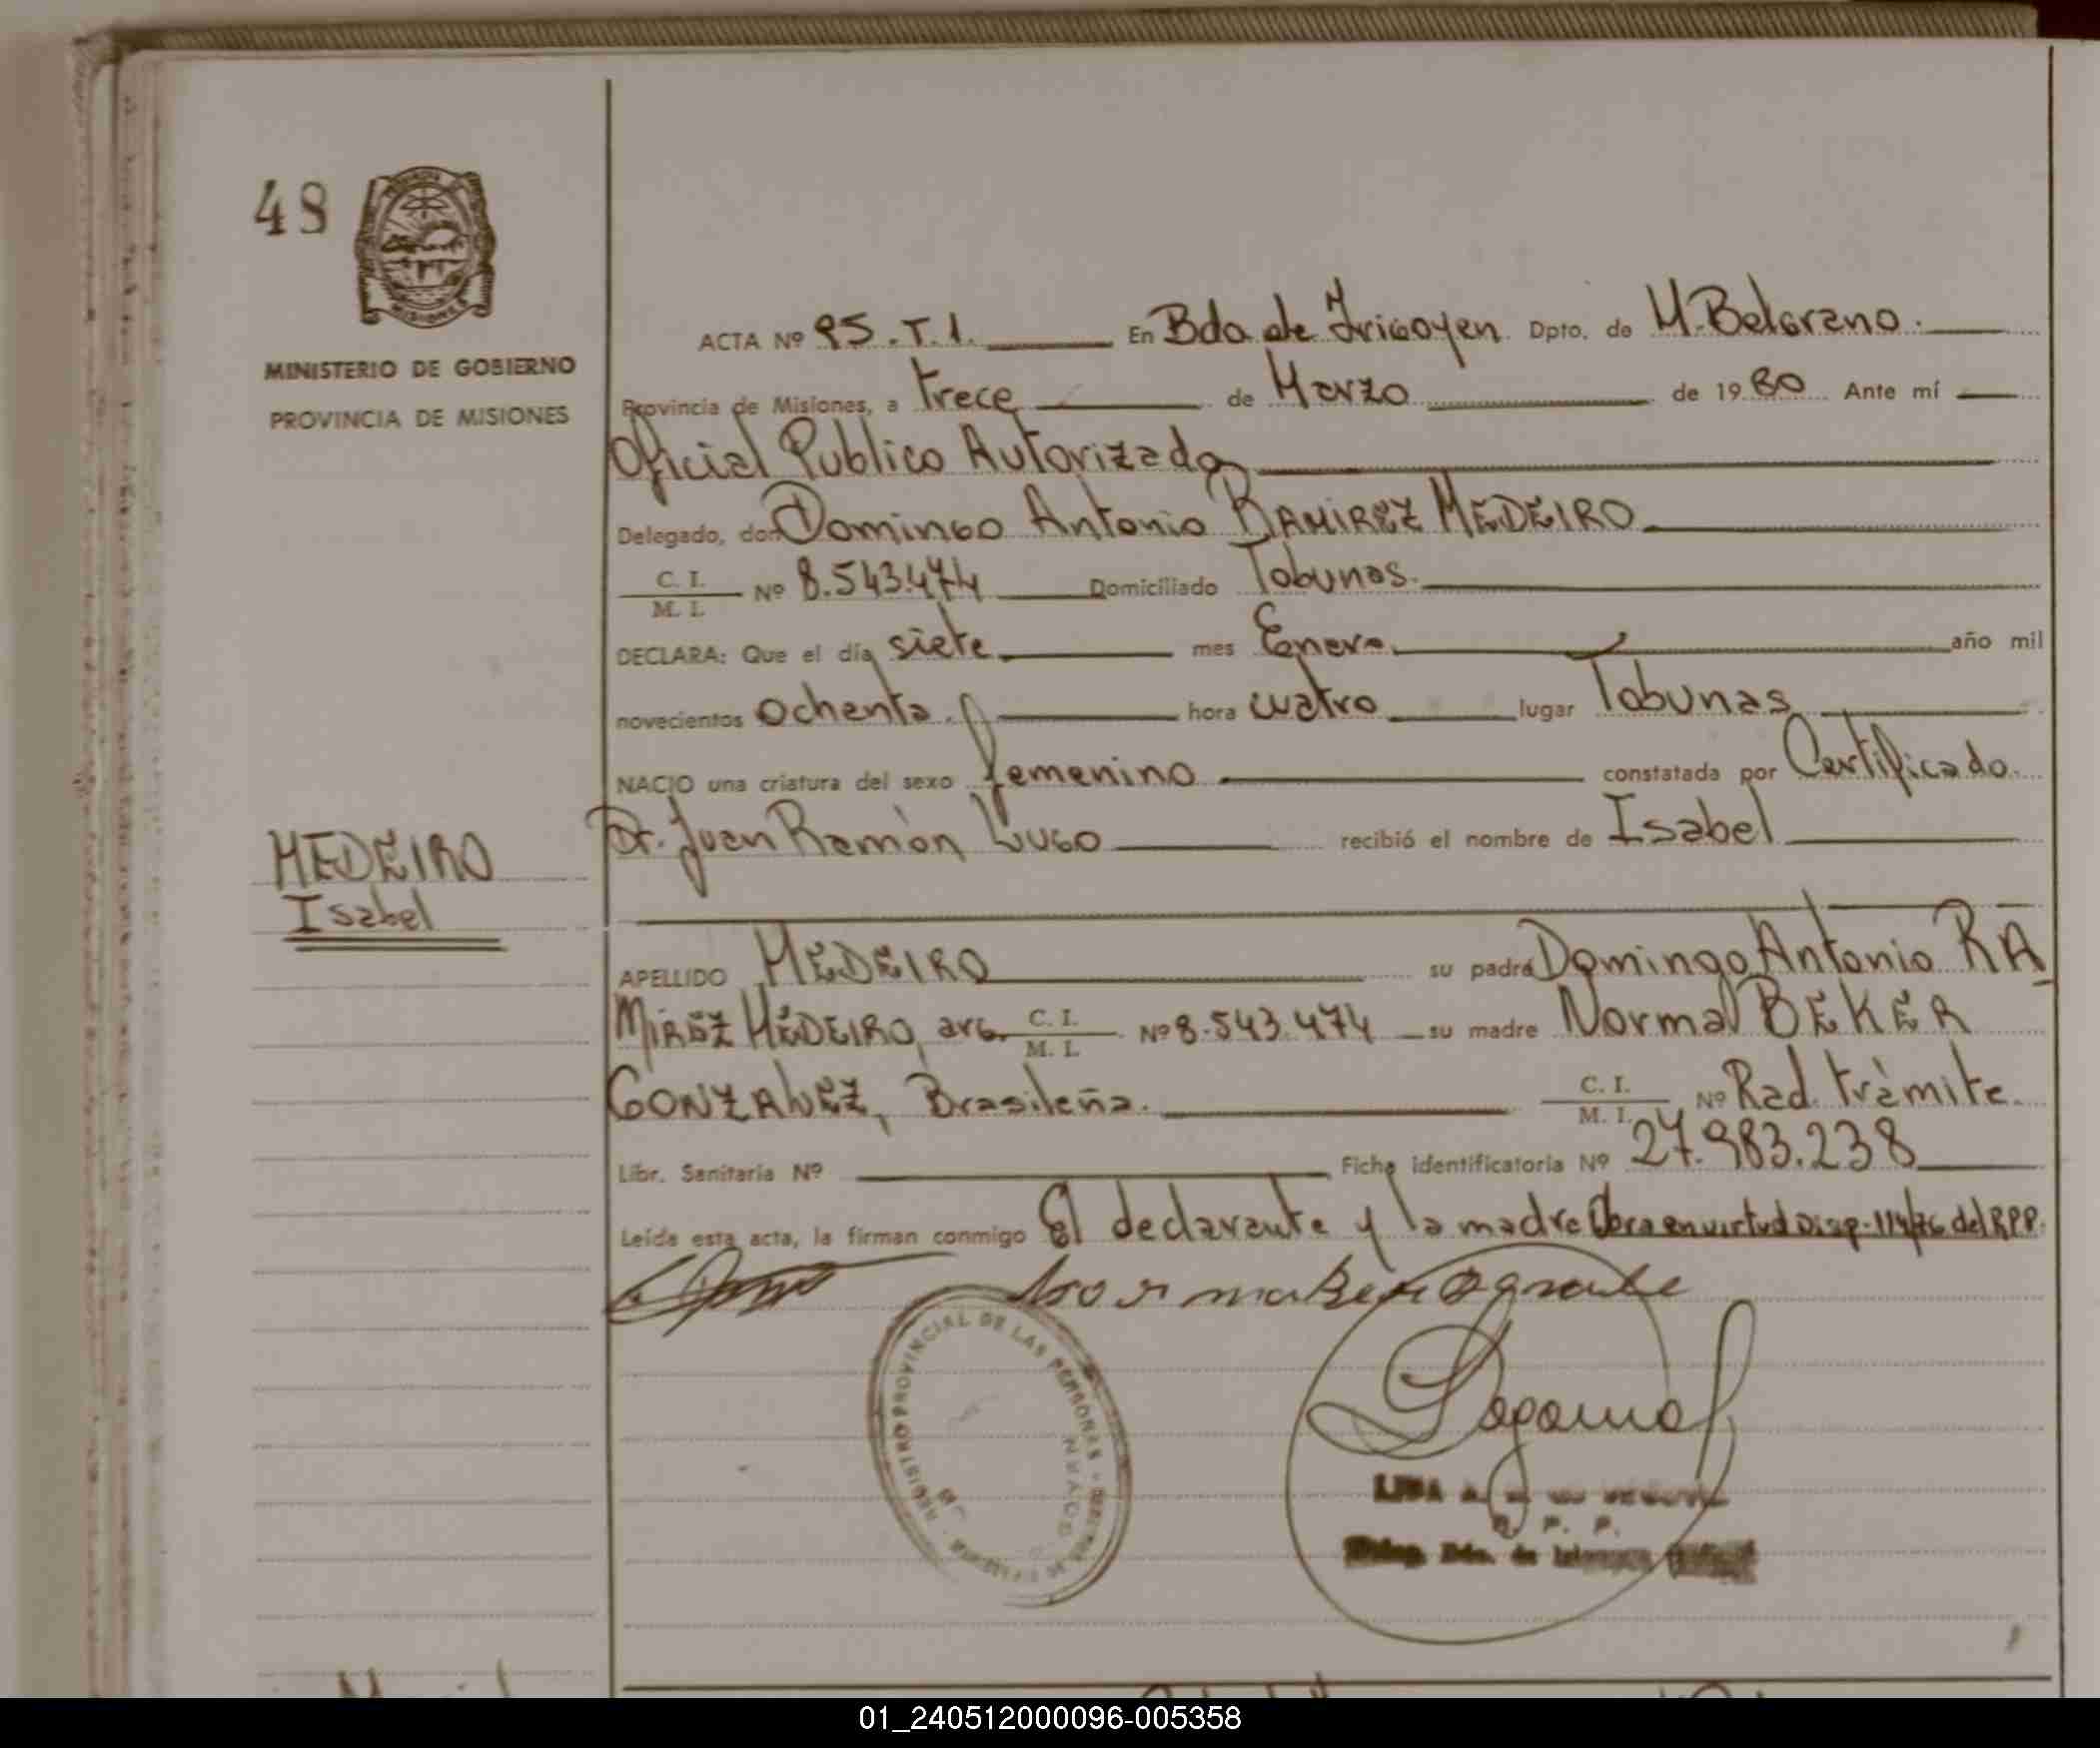 48
MINISTERIO DE GOBIERNO
PROVINCIA DE MISIONES
ACTA Nº 95.T.1. En Bdo de Irigoyen Dpto. de M. Belgrano.
Provincia de Misiones, a trece de Marzo de 1980 Ante mí
Oficial Publico Autorizado
Delegado, don Domingo Antonio RAMIREZ MEDEIRO
C. I.
M. I. Nº 8.543.474 Domiciliado Tobunas.
DECLARA: Que el día siete mes Enero año mil
novecientos ochenta. hora cuatro lugar Tobunas
NACIO una criatura del sexo femenino constatada por Certificado.
Dr. Juan Ramón Lugo recibió el nombre de Isabel
MEDEIRO
Isabel
APELLIDO MEDEIRO su padre Domingo Antonio RA
MIREZ MEDEIRO, arg. C. I. M. I. Nº 8.543.474 su madre Norma BEKER
GONZALVEZ, Brasileña. C. I. M. I. Nº Rad. tràmite.
Libr. Sanitaria Nº Ficha identificatoria Nº 27.983.238
Leída esta acta, la firman conmigo El declarante y la madre Obra en virtud Disp. 114/76 del R.P.P.
REGISTRO PROVINCIAL DE LAS PERSONAS
R. P. P.
01_240512000096-005358